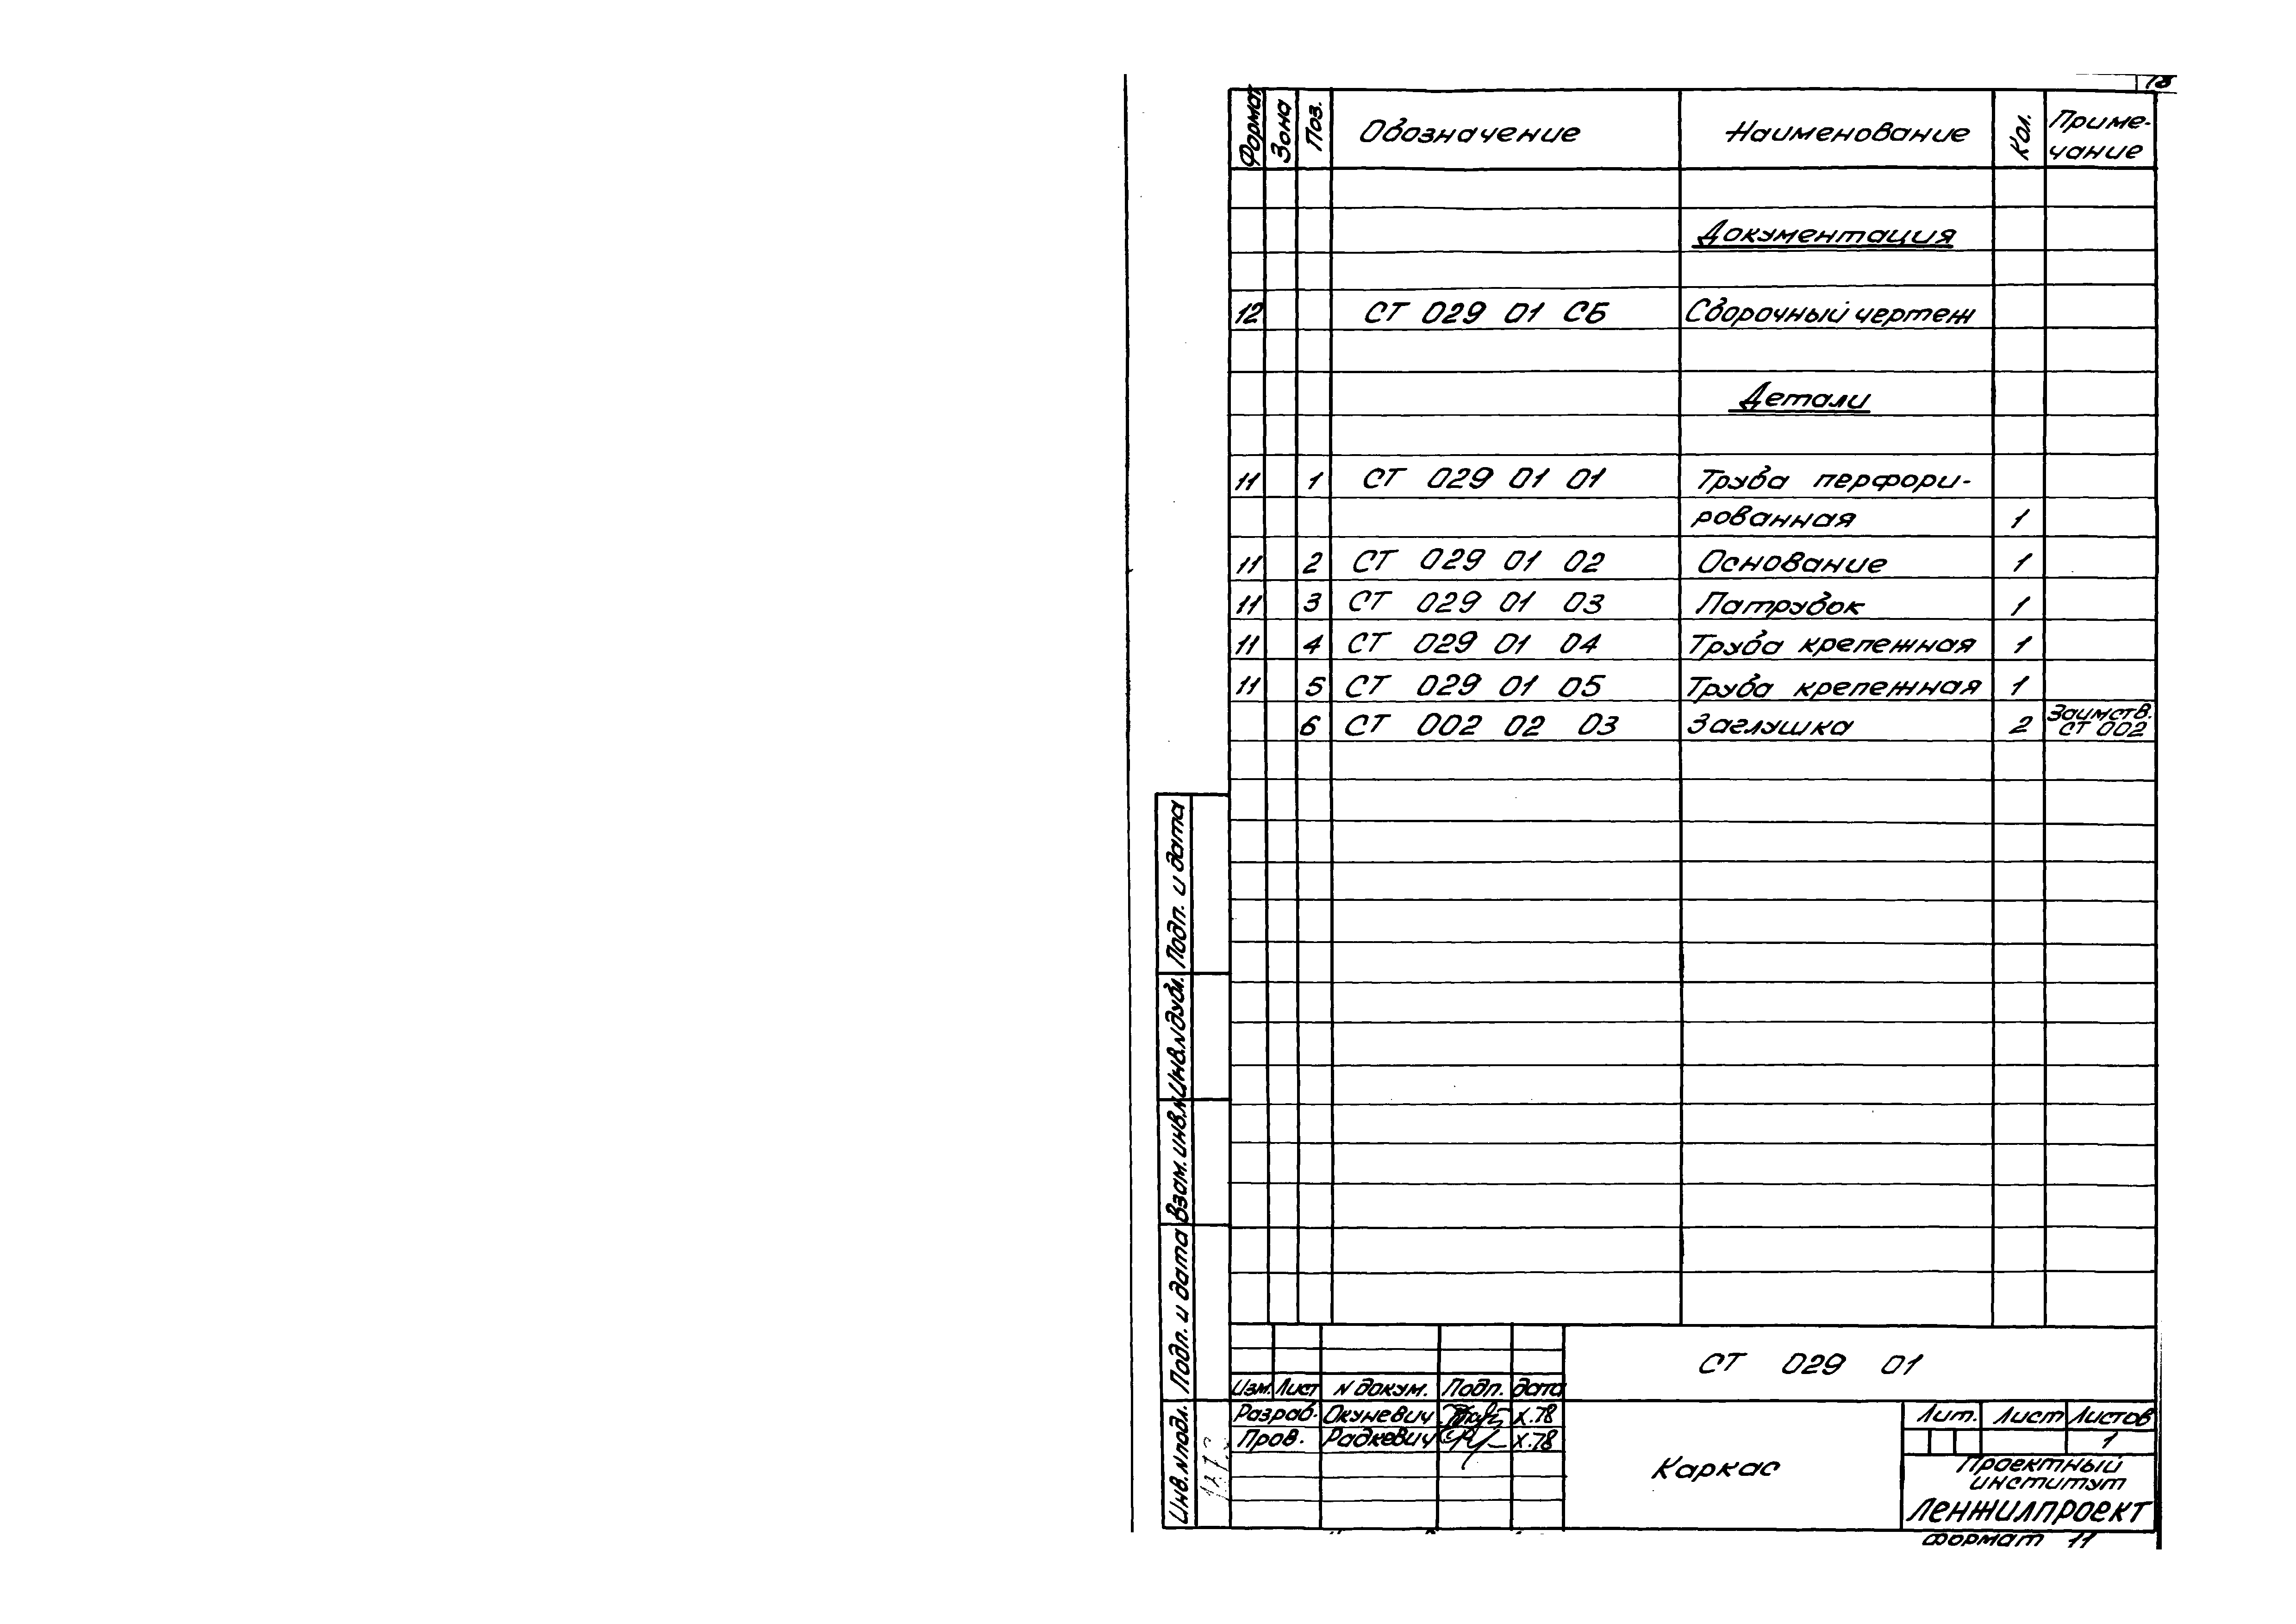 18
Формат Зона Поз. Обозначение Наименование Кол. Приме-
чание
Документация
12 СТ 029 01 СБ Сборочный чертеж
Детали
11 1 СТ 029 01 01 Труба перфори-
рованная 1
11 2 СТ 029 01 02 Основание 1
11 3 СТ 029 01 03 Патрубок 1
11 4 СТ 029 01 04 Труба крепежная 1
11 5 СТ 029 01 05 Труба крепежная 1
6 СТ 002 02 03 Заглушка 2 Заимств.
СТ 002
Подп. и дата
Инв.N дубл.
Взам. инв.N
Подп. и дата
Инв. N подл.
СТ 029 01
Изм. Лист N докум. Подп. дата
Разраб. Окуневич X.78
Пров. Радкевич X.78
Каркас
Лит. Лист Листов
1
Проектный
институт
ЛЕНЖИЛПРОЕКТ
формат 11